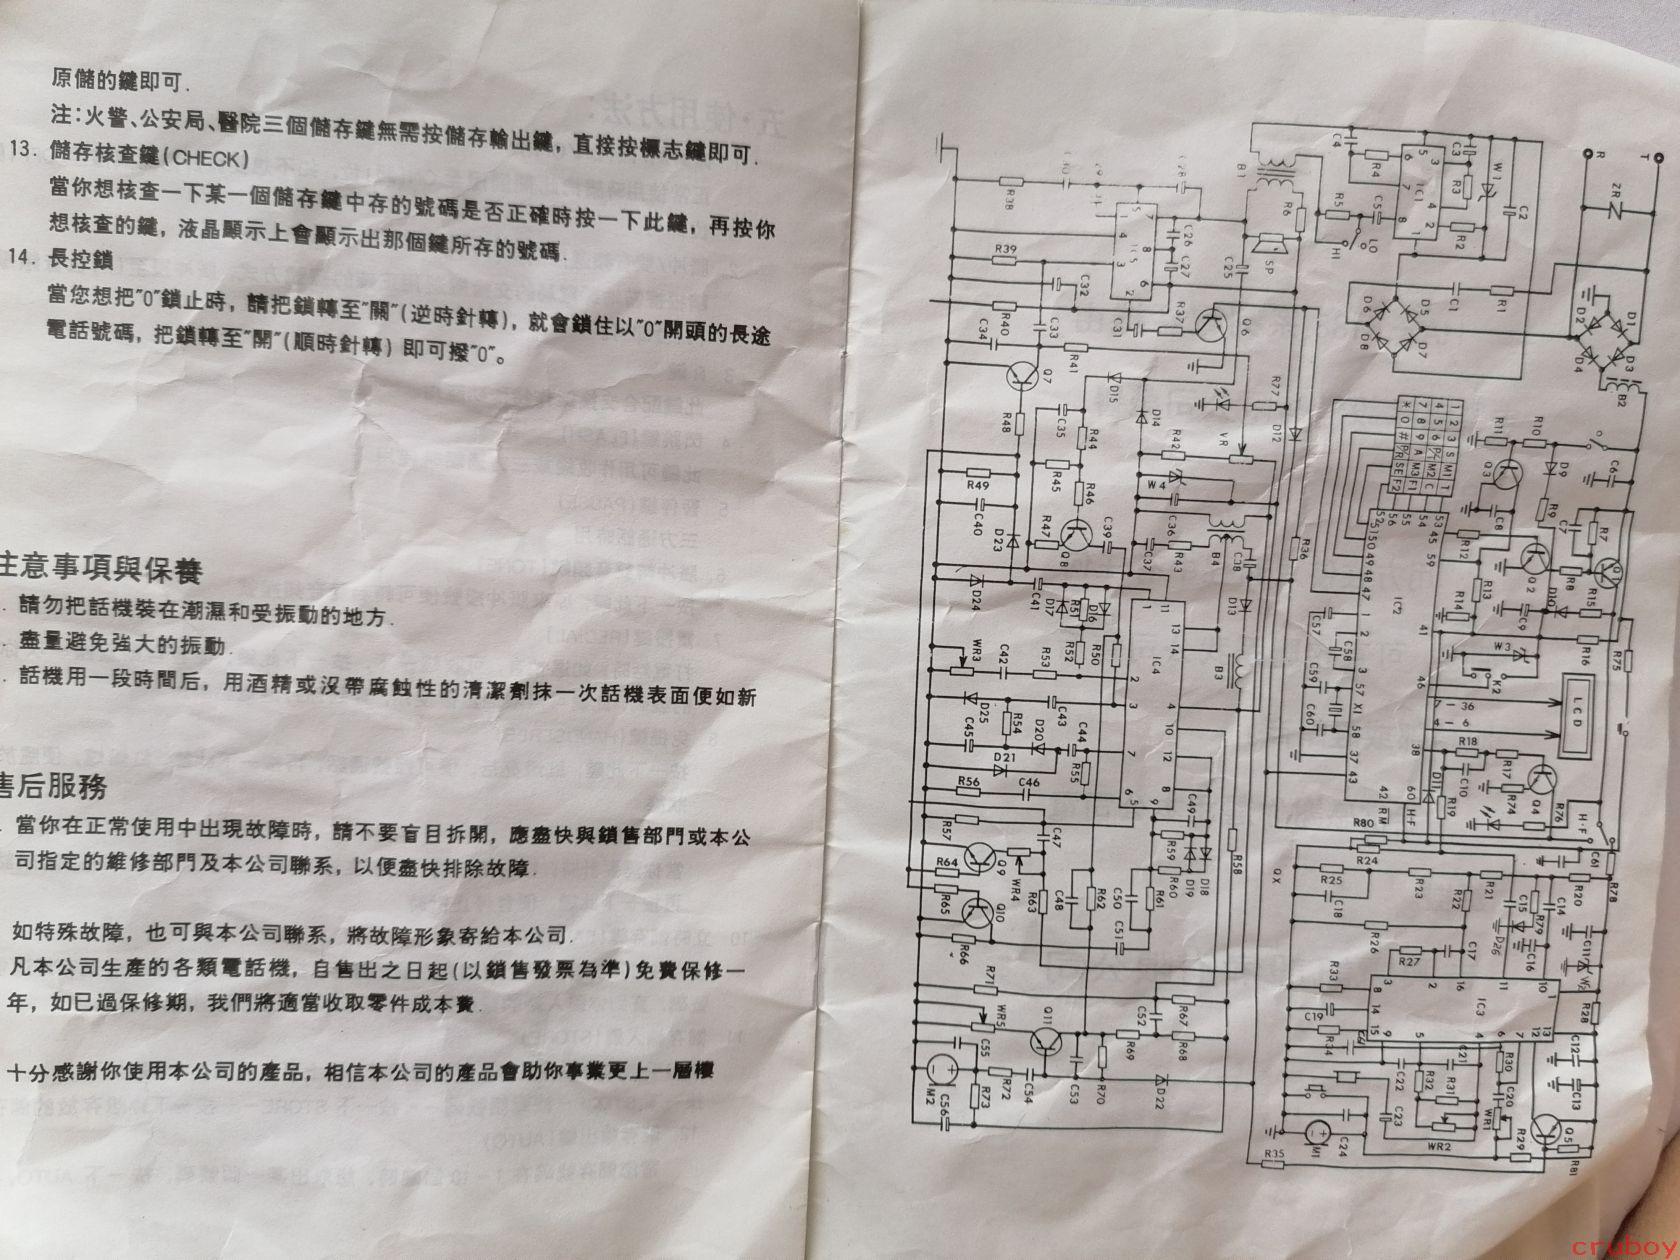 原儲的鍵即可.
注:火警、公安局、醫院三個儲存鍵無需按儲存輸出鍵，直接按標志鍵即可.
13. 儲存核查鍵(CHECK)
當你想核查一下某一個儲存鍵中存的號碼是否正確時按一下此鍵，再按你
想核查的鍵，液晶顯示上會顯示出那個鍵所存的號碼.
14. 長控鎖
當您想把"0"鎖止時，請把鎖轉至"關"(逆時針轉)，就會鎖住以"0"開頭的長途
電話號碼，把鎖轉至"開"(順時針轉)即可撥"0"。
注意事項與保養
. 請勿把話機裝在潮濕和受振動的地方.
. 盡量避免強大的振動.
. 話機用一段時間后，用酒精或沒帶腐蝕性的清潔劑抹一次話機表面便如新
售后服務
. 當你在正常使用中出現故障時，請不要盲目拆開，應盡快與鎖售部門或本公
司指定的維修部門及本公司聯系，以便盡快排除故障.
如特殊故障，也可與本公司聯系，將故障形象寄給本公司.
凡本公司生產的各類電話機，自售出之日起(以鎖售發票為準)免費保修一
年，如已過保修期，我們將適當收取零件成本費.
十分感謝你使用本公司的產品，相信本公司的產品會助你事業更上一層樓
T
R
ZR
D1
D2
D3
D4
B2
C1
R1
D5
D6
D7
D8
C2
W1
C3
R3
R2
C4
R4
IC1
C5
R5
LO
HI
B1
R6
SP
C25
Q6
R77
D12
VR
R36
C6
R10
R11
D9
R9
Q3
C8
C7
R7
R8
Q2
R12
R13
R14
R15
D10
C9
R16
R75
W3
K2
LCD
IC2
C57
C58
C59
C60
X1
R18
C10
R17
R74
Q4
R76
D11
R19
H·F
R80
R24
C61
R78
QX
R25
C18
R23
R22
R21
R20
C14
C15
R79
D26
C16
C11
R26
R27
C17
IC3
R28
C12
C13
R33
C19
R34
C22
C21
R32
R31
C23
WR2
R30
C20
WR1
R29
Q5
R81
C24
M1
R35
R38
C26
C27
R39
C32
C31
R37
R40
C33
C34
R41
Q7
D15
D14
R42
W4
R48
C35
R44
R45
R46
R49
C40
R47
Q8
C39
D23
C36
R43
C37
B4
D13
B3
D24
C41
D17
R51
D16
R52
R50
IC4
WR3
C42
R53
D25
R54
C43
C45
D20
C44
D21
R55
R56
C46
R57
C47
C49
R59
R60
D19
D18
R58
R64
Q9
WR4
R63
C48
R62
C50
R61
C51
R65
Q10
R66
R71
WR5
Q11
C52
R67
R68
R69
C55
M2
C56
R73
R72
C54
C53
R70
D22
cruboy